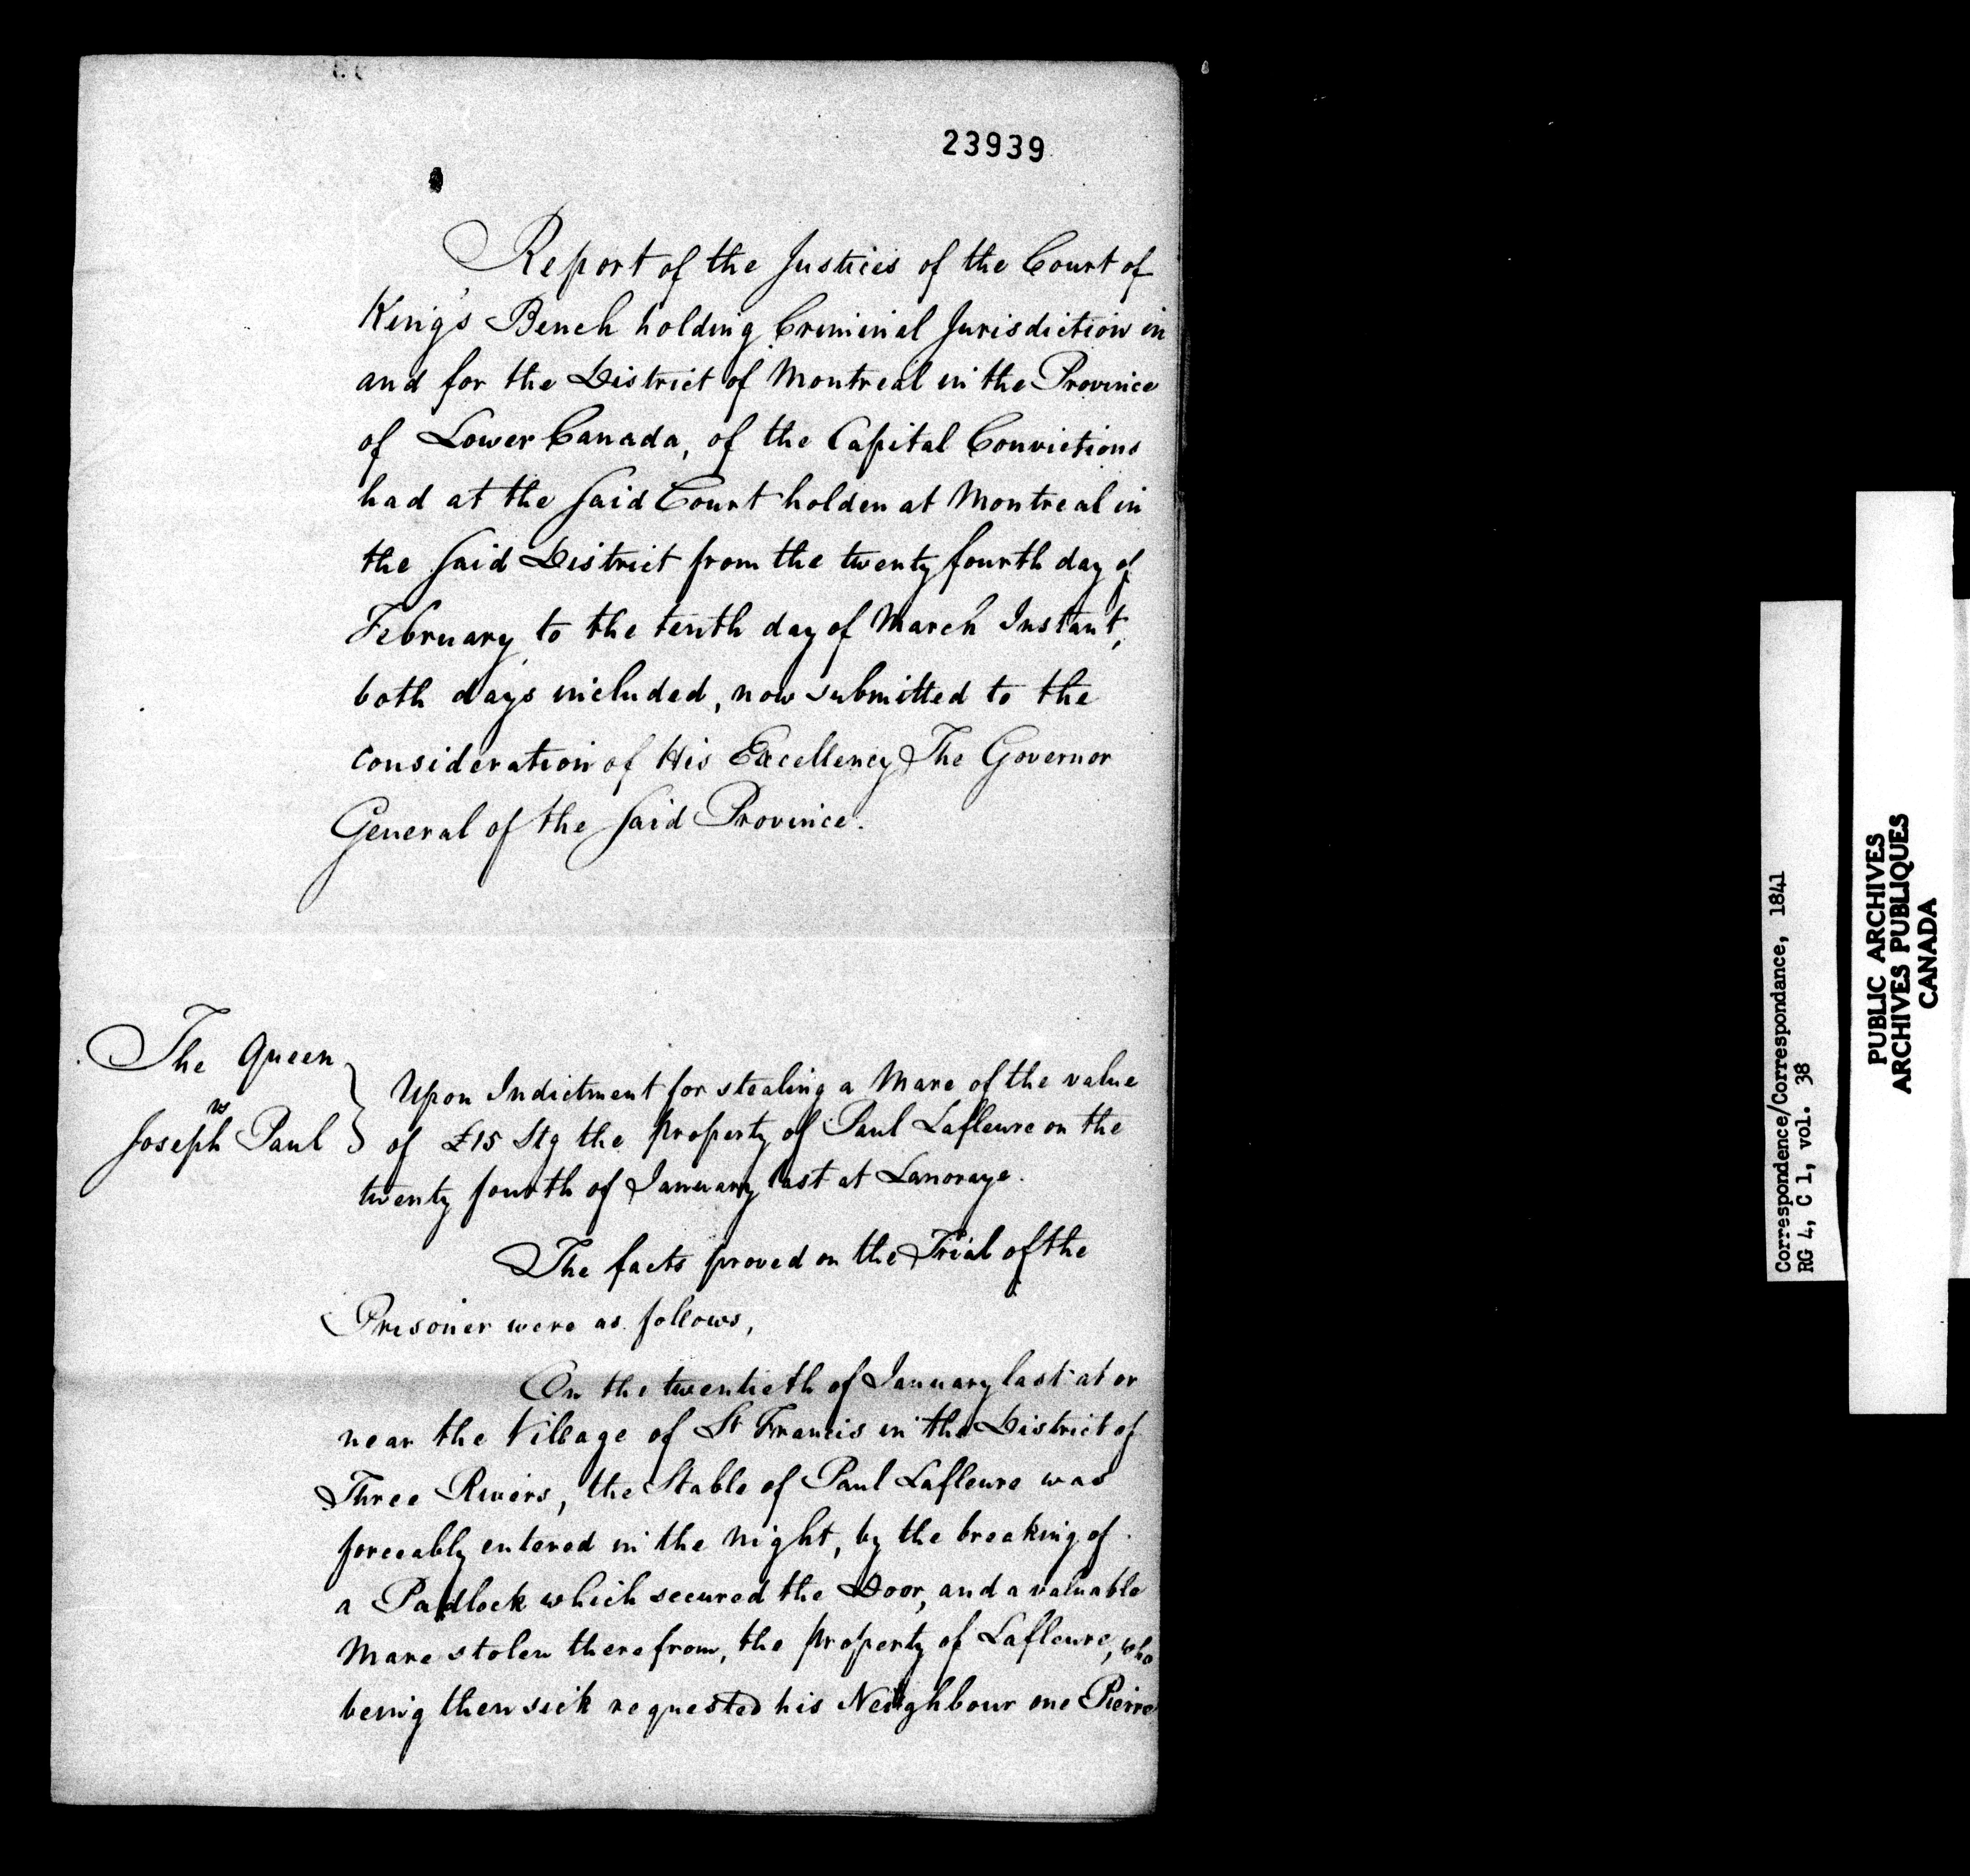 23939
Report of the Justices of the Court of
King's Bench holding Criminal Jurisdiction in
and for the District of Montreal in the Province
of Lower Canada, of the Capital Convictions
had at the said Court holden at Montreal in
the said District from the twenty fourth day of
February to the tenth day of March Instant,
both days included, now submitted to the
consideration of His Excellency The Governor
General of the said Province.
The Queen
vs
Joseph Paul
Upon Indictment for stealing a Mare of the value
of £15 Stg the property of Paul Lafleure on the
twenty fourth of January last at Lanoraye.
The facts proved on the Trial of the
Prisoner were as follows,
On the twentieth of January last at or
near the Village of St Francis in the District of
Three Rivers, the Stable of Paul Lafleure was
forceably entered in the Night, by the breaking of
a Padlock which secured the Door, and a valuable
Mare stolen therefrom, the property of Lafleure, who
being then sick requested his Neighbour one Pierre
Correspondence/Correspondance, 1841
RG 4, C 1, vol. 38
PUBLIC ARCHIVES
ARCHIVES PUBLIQUES
CANADA